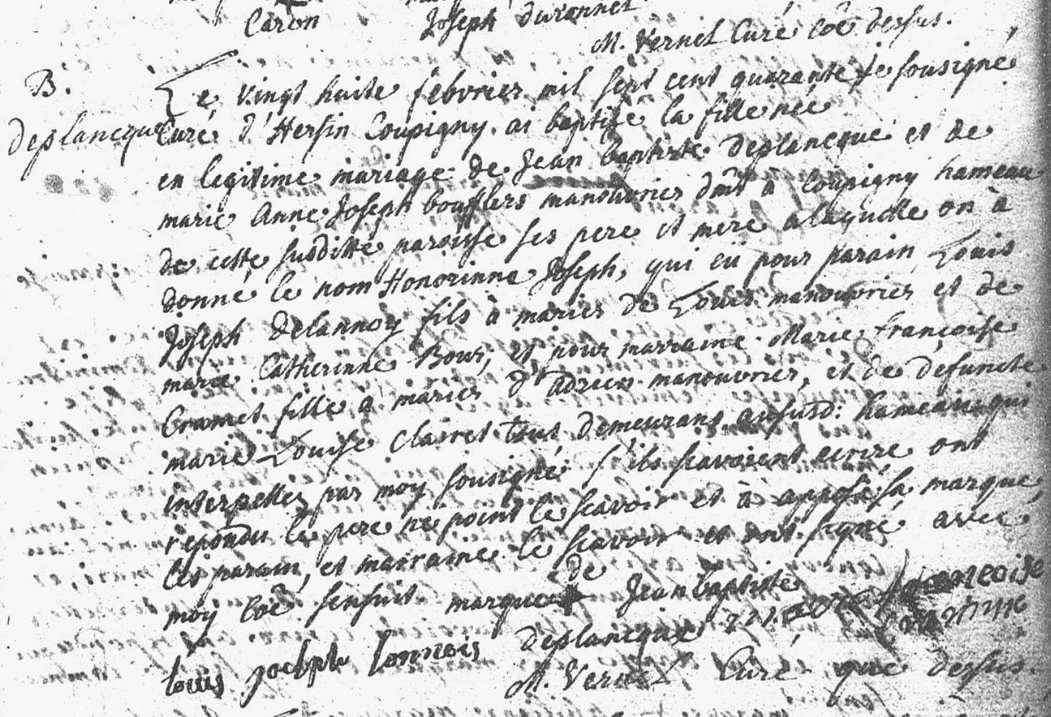 Caron Joseph duronnel
M. Vernel Curé coe dessus.
B.
deplancque
Le vingt huite febvrier mil sept cent quarante je sousigné
Curé d'Hersin Coupigny ai baptisé la fille née
en legitime mariage de Jean baptiste deplancque et de
marie Anne Joseph boufflers manouvrier dmt à Coupigny hameau
de cette susditte paroisse ses pere et mere a laquelle on à
donné le nom Honorinne Joseph, qui eu pour parain Louis
Joseph Delannoy fils à marier de Louis manouvrier et de
marie Catherinne Bour, et pour marraine Marie françoise
Cramet fille à marier d'adrien manouvrier, et de defuncte
marie Louise Clairet tous demeurans audusd: hameau qui
interpellés par moy sousigné s'ils scavoient ecrire ont
repondu le pere ne point le scavoir et à apposé sa marque,
les parain, et marraine le scavoir et ont signé avec
moy coe sensuit marque de Jean baptiste
deplancque
louis joelph lonnois
M. Vernel Curé que dessus.